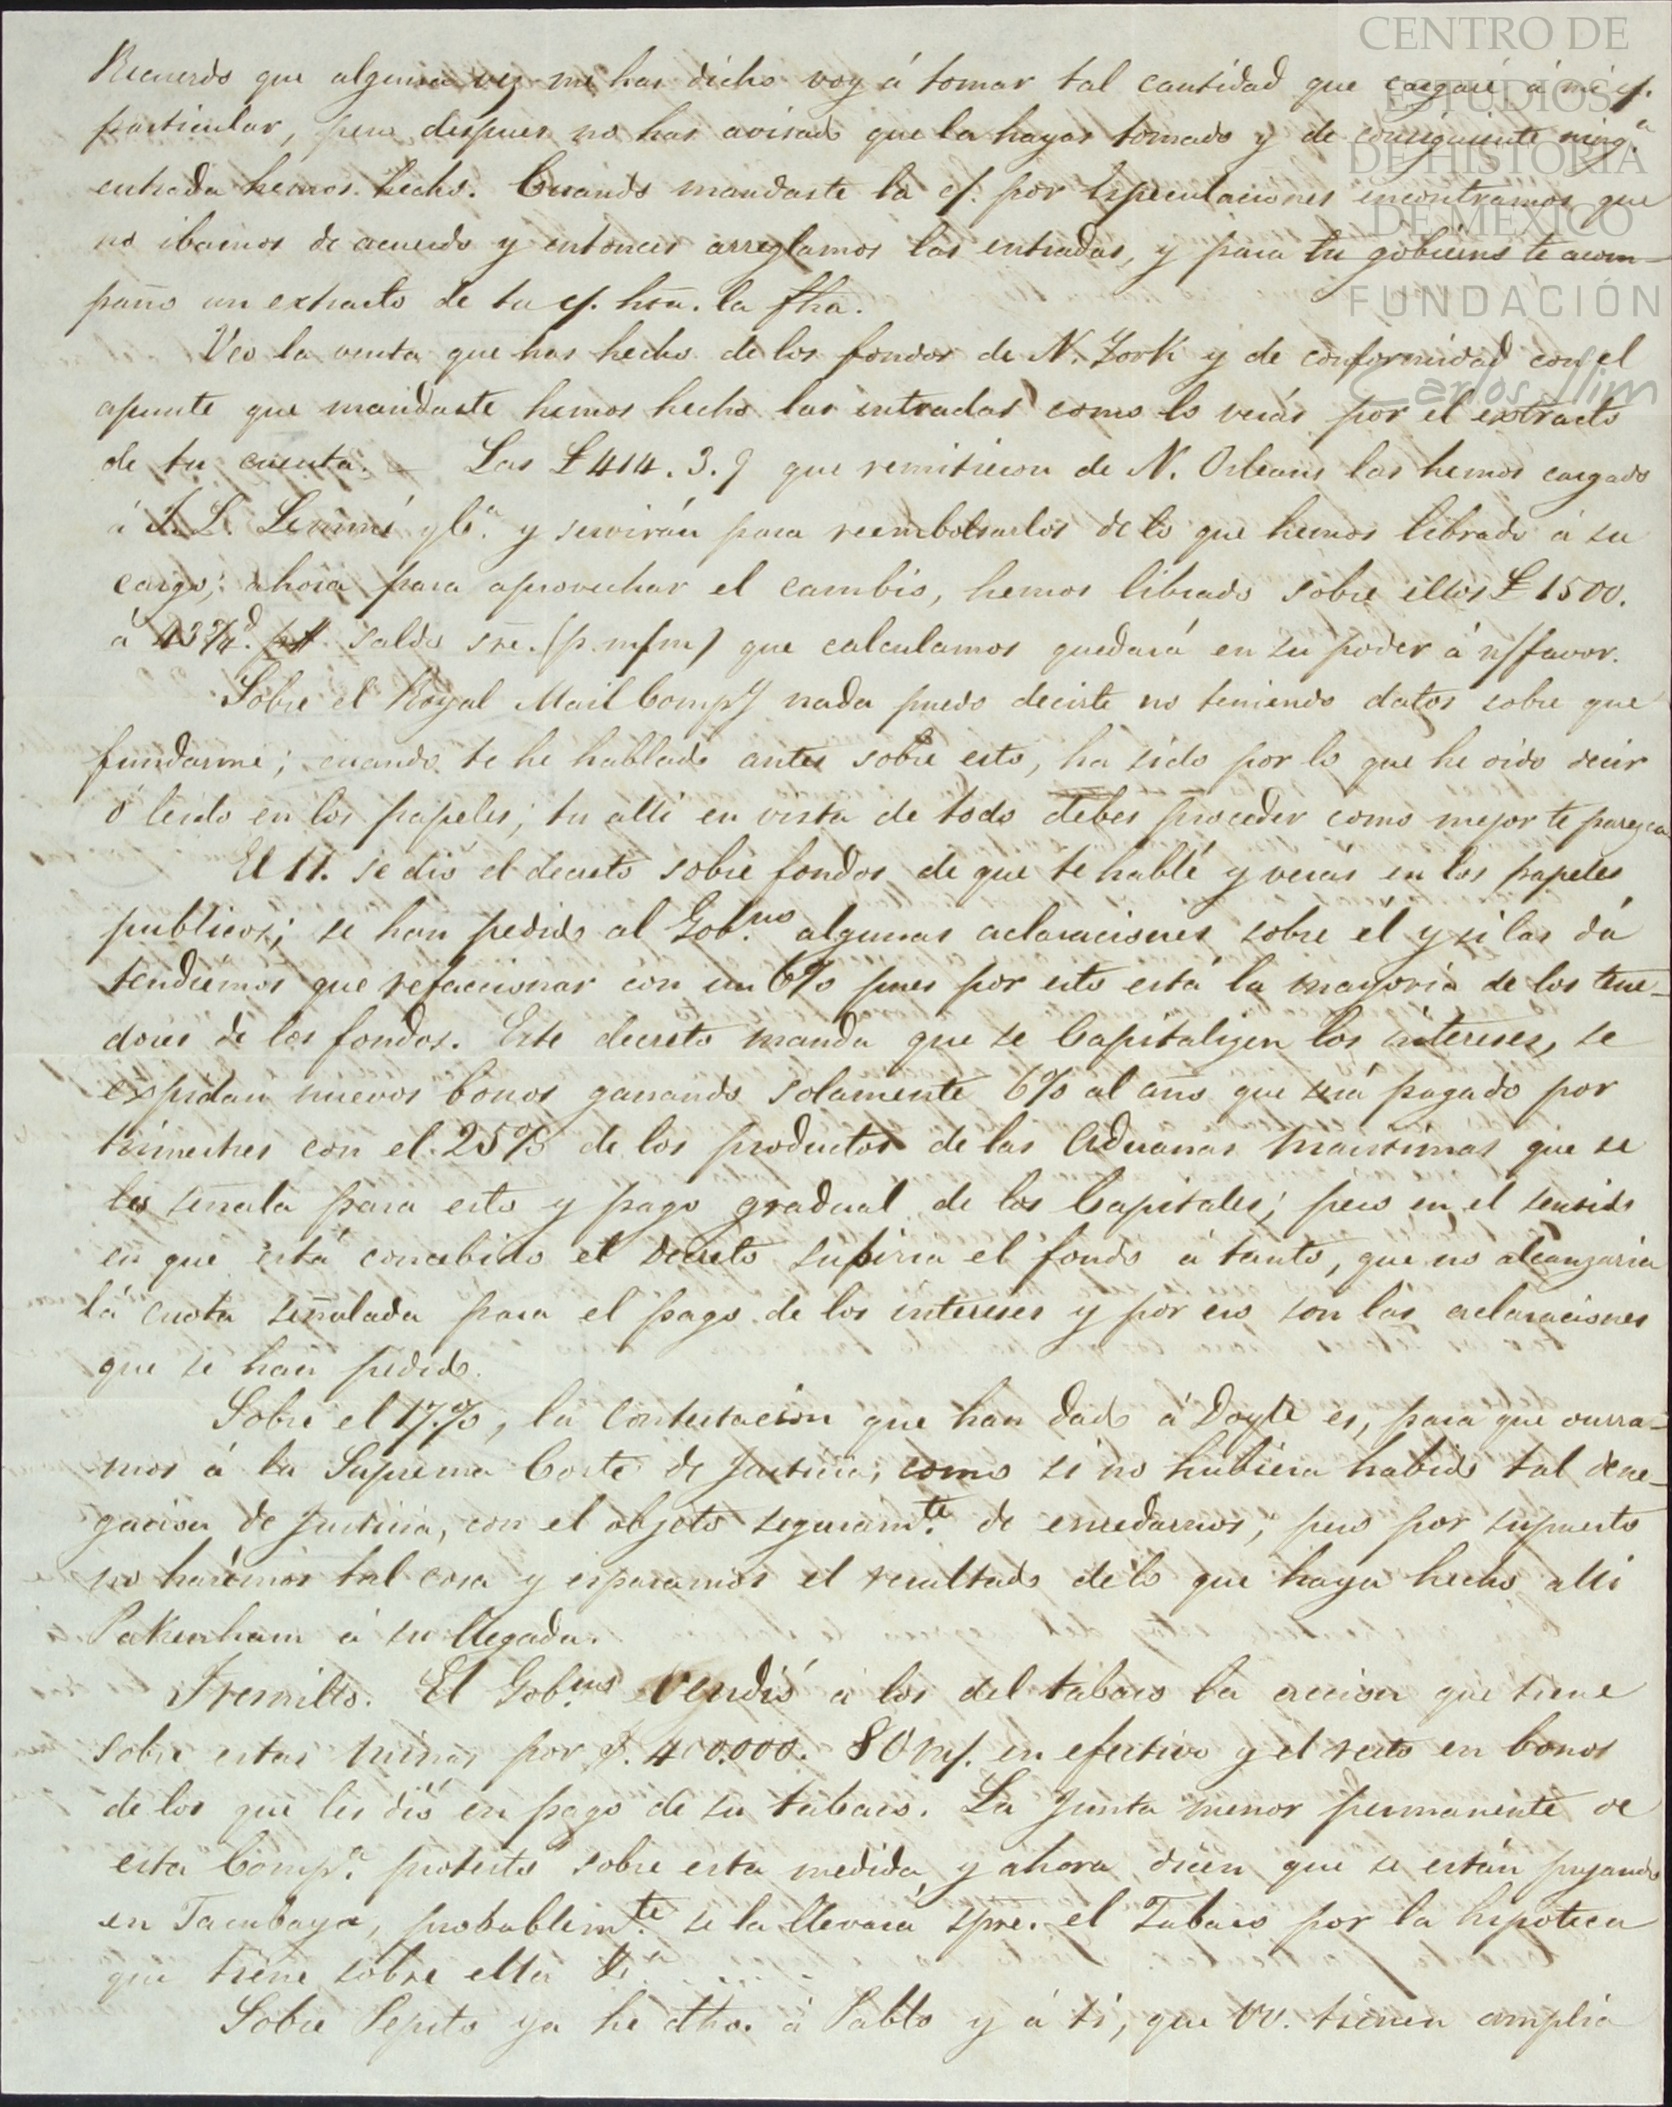 CENTRO DE
ESTUDIOS
DE HISTORIA
DE MEXICO
FUNDACIÓN
Carlos Slim
Recuerdo que alguna vez me has dicho voy á tomar tal cantidad que cargaré á mi c/.
particular, pero despues no has avisado que la hayas tomado y de consiguiente ning.a
entrada hemos hecho. Cuando mandaste la c/. por Especulaciones encontramos que
no ibamos de acuerdo y entonces arreglamos las entradas, y para tu gobierno te acom-
paño un extracto de tu c/. hta. la fha.
Veo la venta que has hecho de los fondos de N. York y de conformidad con el
apunte que mandaste hemos hecho las entradas como lo verás por el extracto
de tu cuenta. — Las £414.3.9 que remitieron de N. Orleans las hemos cargado
á J. L. Lemmé y C.a y servirán para reembolsarlos de lo que hemos librado á su
cargo; ahora para aprovechar el cambio, hemos librado sobre ellos £1500.
á 43¾d. saldo sre. (p. m/m) que calculamos quedará en su poder á n/favor.
Sobre el Royal Mail Compy nada puedo decirte no teniendo datos sobre que
fundarme; cuando te he hablado antes sobre esto, ha sido por lo que he oido decir
ó leido en los papeles; tu alli en vista de todo debes proceder como mejor te paresca.
El 11. se dió el decreto sobre fondos de que te hablé y verás en los papeles
publicos; se han pedido al Gob.no algunas aclaraciones sobre él y si las dá
tendrémos que refaccionar con un 6% pues por esto está la mayoría de los tene-
dores de los fondos. Este decreto manda que se Capitalizen los intereses, se
expidan nuevos bonos ganando solamente 6% al año que será pagado por
trimestres con el 25% de los productos de las Aduanas Maritimas que se
les señala para esto y pago gradual de los Capitales; pero en el sentido
en que está concebido el Decreto subiria el fondo á tanto, que no alcanzaria
la cuota señalada para el pago de los intereses y por eso son las aclaraciones
que se han pedido.
Sobre el 17.%, la Contestacion que han dado á Doyle es, para que ocurra-
mos á la Suprema Corte de Justicia, como si no hubiera habido tal dene-
gacion de Justicia, con el objeto seguram.te de enredarnos, pero por supuesto
no harémos tal cosa y esparamos el resultado de lo que haya hecho alli
Pakenham á su llegada.
Fresnillo. El Gob.no Vendió á los del tabaco la accion que tiene
sobre estas minas por $. 400.000. 80 m/. en efectivo y el resto en bonos
de los que les dió en pago de su tabaco. La Junta menor permanente de
esta Comp.a protestó sobre esta medida y ahora dicen que se están pujando
en Tacubaya, probablem.te se la llevará spre. el Tabaco por la hipoteca
que tiene sobre ella
Sobre Pepito ya he dho. á Pablo y á ti, que VV. tienen amplia